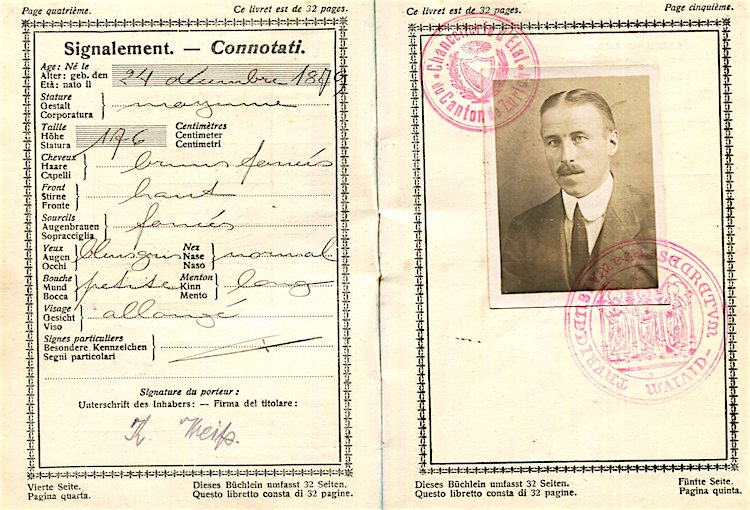 Page quatrième.
Ce livret est de 32 pages.
Signalement. — Connotati.
Age: Né le
Alter: geb. den
Età: nato il
24 décembre 1879
Stature
Gestalt
Corporatura
moyenne
Taille
Höhe
Statura
176
Centimètres
Centimeter
Centimetri
Cheveux
Haare
Capelli
bruns foncés
Front
Stirne
Fronte
haut
Sourcils
Augenbrauen
Sopracciglia
foncés
Yeux
Augen
Occhi
bleu gris
Nez
Nase
Naso
normal
Bouche
Mund
Bocca
petite
Menton
Kinn
Mento
long
Visage
Gesicht
Viso
allongé
Signes particuliers
Besondere Kennzeichen
Segni particolari
Signature du porteur:
Unterschrift des Inhabers: — Firma del titolare:
Vierte Seite.
Pagina quarta.
Dieses Büchlein umfasst 32 Seiten.
Questo libretto consta di 32 pagine.
Ce livret est de 32 pages.
Page cinquième.
Chancellerie d'Etat
du Canton de Zurich
Dieses Büchlein umfasst 32 Seiten.
Questo libretto consta di 32 pagine.
Fünfte Seite.
Pagina quinta.